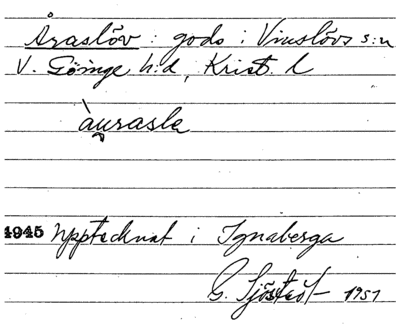 Åraslöv : gods i Vinslövs s:n
V. Göinge h:d, Krist. l
àu̯rasla
1945 Upptecknat i Ignaberga
G. Sjöstedt 1951